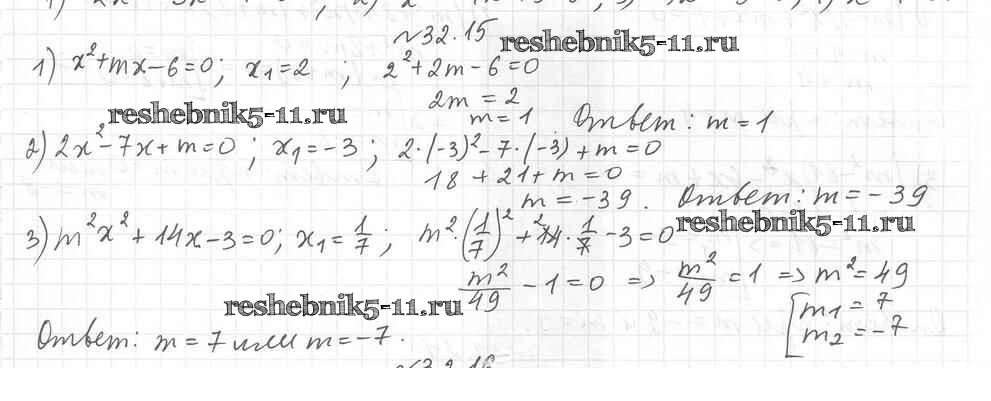 №32.15
reshebnik5-11.ru
1) x²+mx-6=0; x₁=2 ; 2²+2m-6=0
2m=2
reshebnik5-11.ru
m=1 Ответ: m=1
2) 2x²-7x+m=0; x₁=-3; 2·(-3)²-7·(-3)+m=0
18+21+m=0
m=-39. Ответ: m=-39
reshebnik5-11.ru
3) m²x²+14x-3=0; x₁=1/7; m²·(1/7)²+14·1/7-3=0
m²/49-1=0 => m²/49=1 => m²=49
reshebnik5-11.ru
[m₁=7
m₂=-7
Ответ: m=7 или m=-7.
№32.16